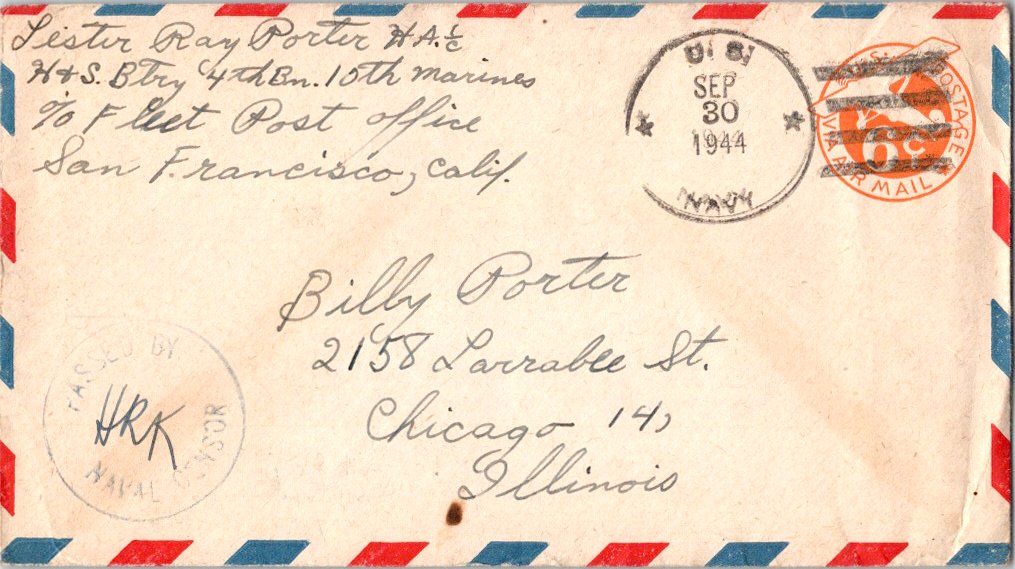 Lester Ray Porter H.A. 1/c
H & S. Btry 4th Bn. 10th Marines
c/o Fleet Post office
San Francisco, Calif.
U. S.
SEP
30
1944
NAVY
U.S. POSTAGE
6¢
VIA AIR MAIL
Billy Porter
2158 Larrabee St.
Chicago 14,
Illinois
PASSED BY
HRK
NAVAL CENSOR